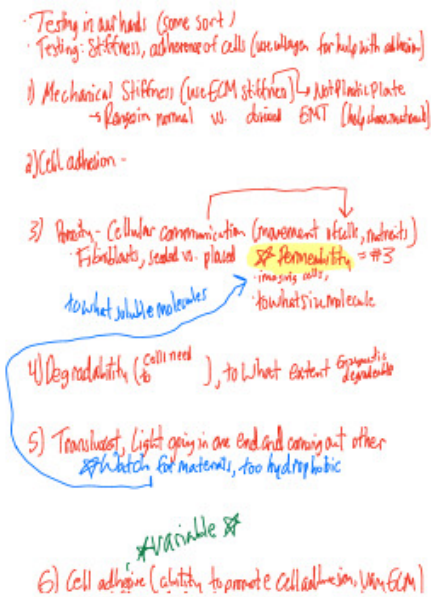 · Testing in our hands (some sort)
· Testing: Stiffness, adherence of cells (use collagen for help with adhesion)
1) Mechanical Stiffness (use ECM stiffness) → Not Plastic plate
→ Range in normal vs. EMT (help choose materials)
2) Cell adhesion -
3) Porosity - Cellular communication (movement of cells, nutrients)
· Fibroblasts, seeded vs. placed ☆ Permeability = #3
· imaging cells,
to what soluble molecules
· to what size molecule
4) Degradability (cells need to ), to what extent Enzymatic degradable
5) Translucent, Light going in one end and coming out other
☆ Watch for materials, too hydrophobic
☆ variable ☆
6) Cell adhesive (ability to promote cell adhesion, ECM)